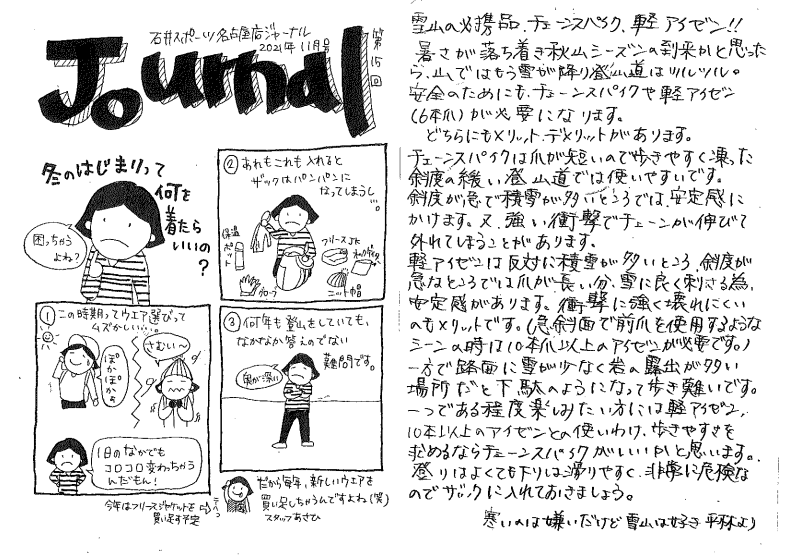 石井スポーツ名古屋店ジャーナル
2021年11月号
第15回
Journal
冬のはじまりって
何を
着たら
いいの
?
困っちゃう
よね?
①この時期ってウエア選びって
ムズかしい…。
ぽかぽかぽから
さむい〜
1日のなかでも
コロコロ変わっちゃう
んだもん!
今年はフリースジャケットを
買い足す予定
②あれもこれも入れると
ザックはパンパンに
なってしまうし
…。
保温ポット
フリースJK
ネックゲイター
グローブ
ニット帽
③何年も登山をしていても、
なかなか答えのでない
難問です。
奥が深い
だから毎年、新しいウエアを
買い足しちゃうんですよね(笑)
スタッフあさひ
雪山の必携品、チェーンスパイク、軽アイゼン!!
暑さが落ち着き秋山シーズンの到来かと思った
ら、山ではもう雪が降り登山道はツルツル。
安全のためにも、チェーンスパイクや軽アイゼン
(6本爪)が必要になります。
どちらにもメリット、デメリットがあります。
チェーンスパイクは爪が短いので歩きやすく凍った
斜度の緩い登山道では使いやすいです。
斜度が急で積雪が多いところでは、安定感に
かけます。又、強い衝撃でチェーンが伸びて
外れてしまうことがあります。
軽アイゼンは反対に積雪が多いところ、斜度が
急なところでは爪が長い分、雪に良く刺さる為、
安定感があります。衝撃に強く壊れにくい
のもメリットです。(急斜面で前爪を使用するような
シーンの時は10本爪以上のアイゼンが必要です。)
一方で路面に雪が少なく岩の露出が多い
場所だと下駄のようになって歩き難いです。
一つである程度楽しみたい方には軽アイゼン、
10本以上のアイゼンとの使いわけ、歩きやすさを
求めるならチェーンスパイクがいいかと思います。
登りはよくても下りは滑りやすく、非常に危険な
のでザックに入れておきましょう。
寒いのは嫌いだけど雪山は好き 平林より